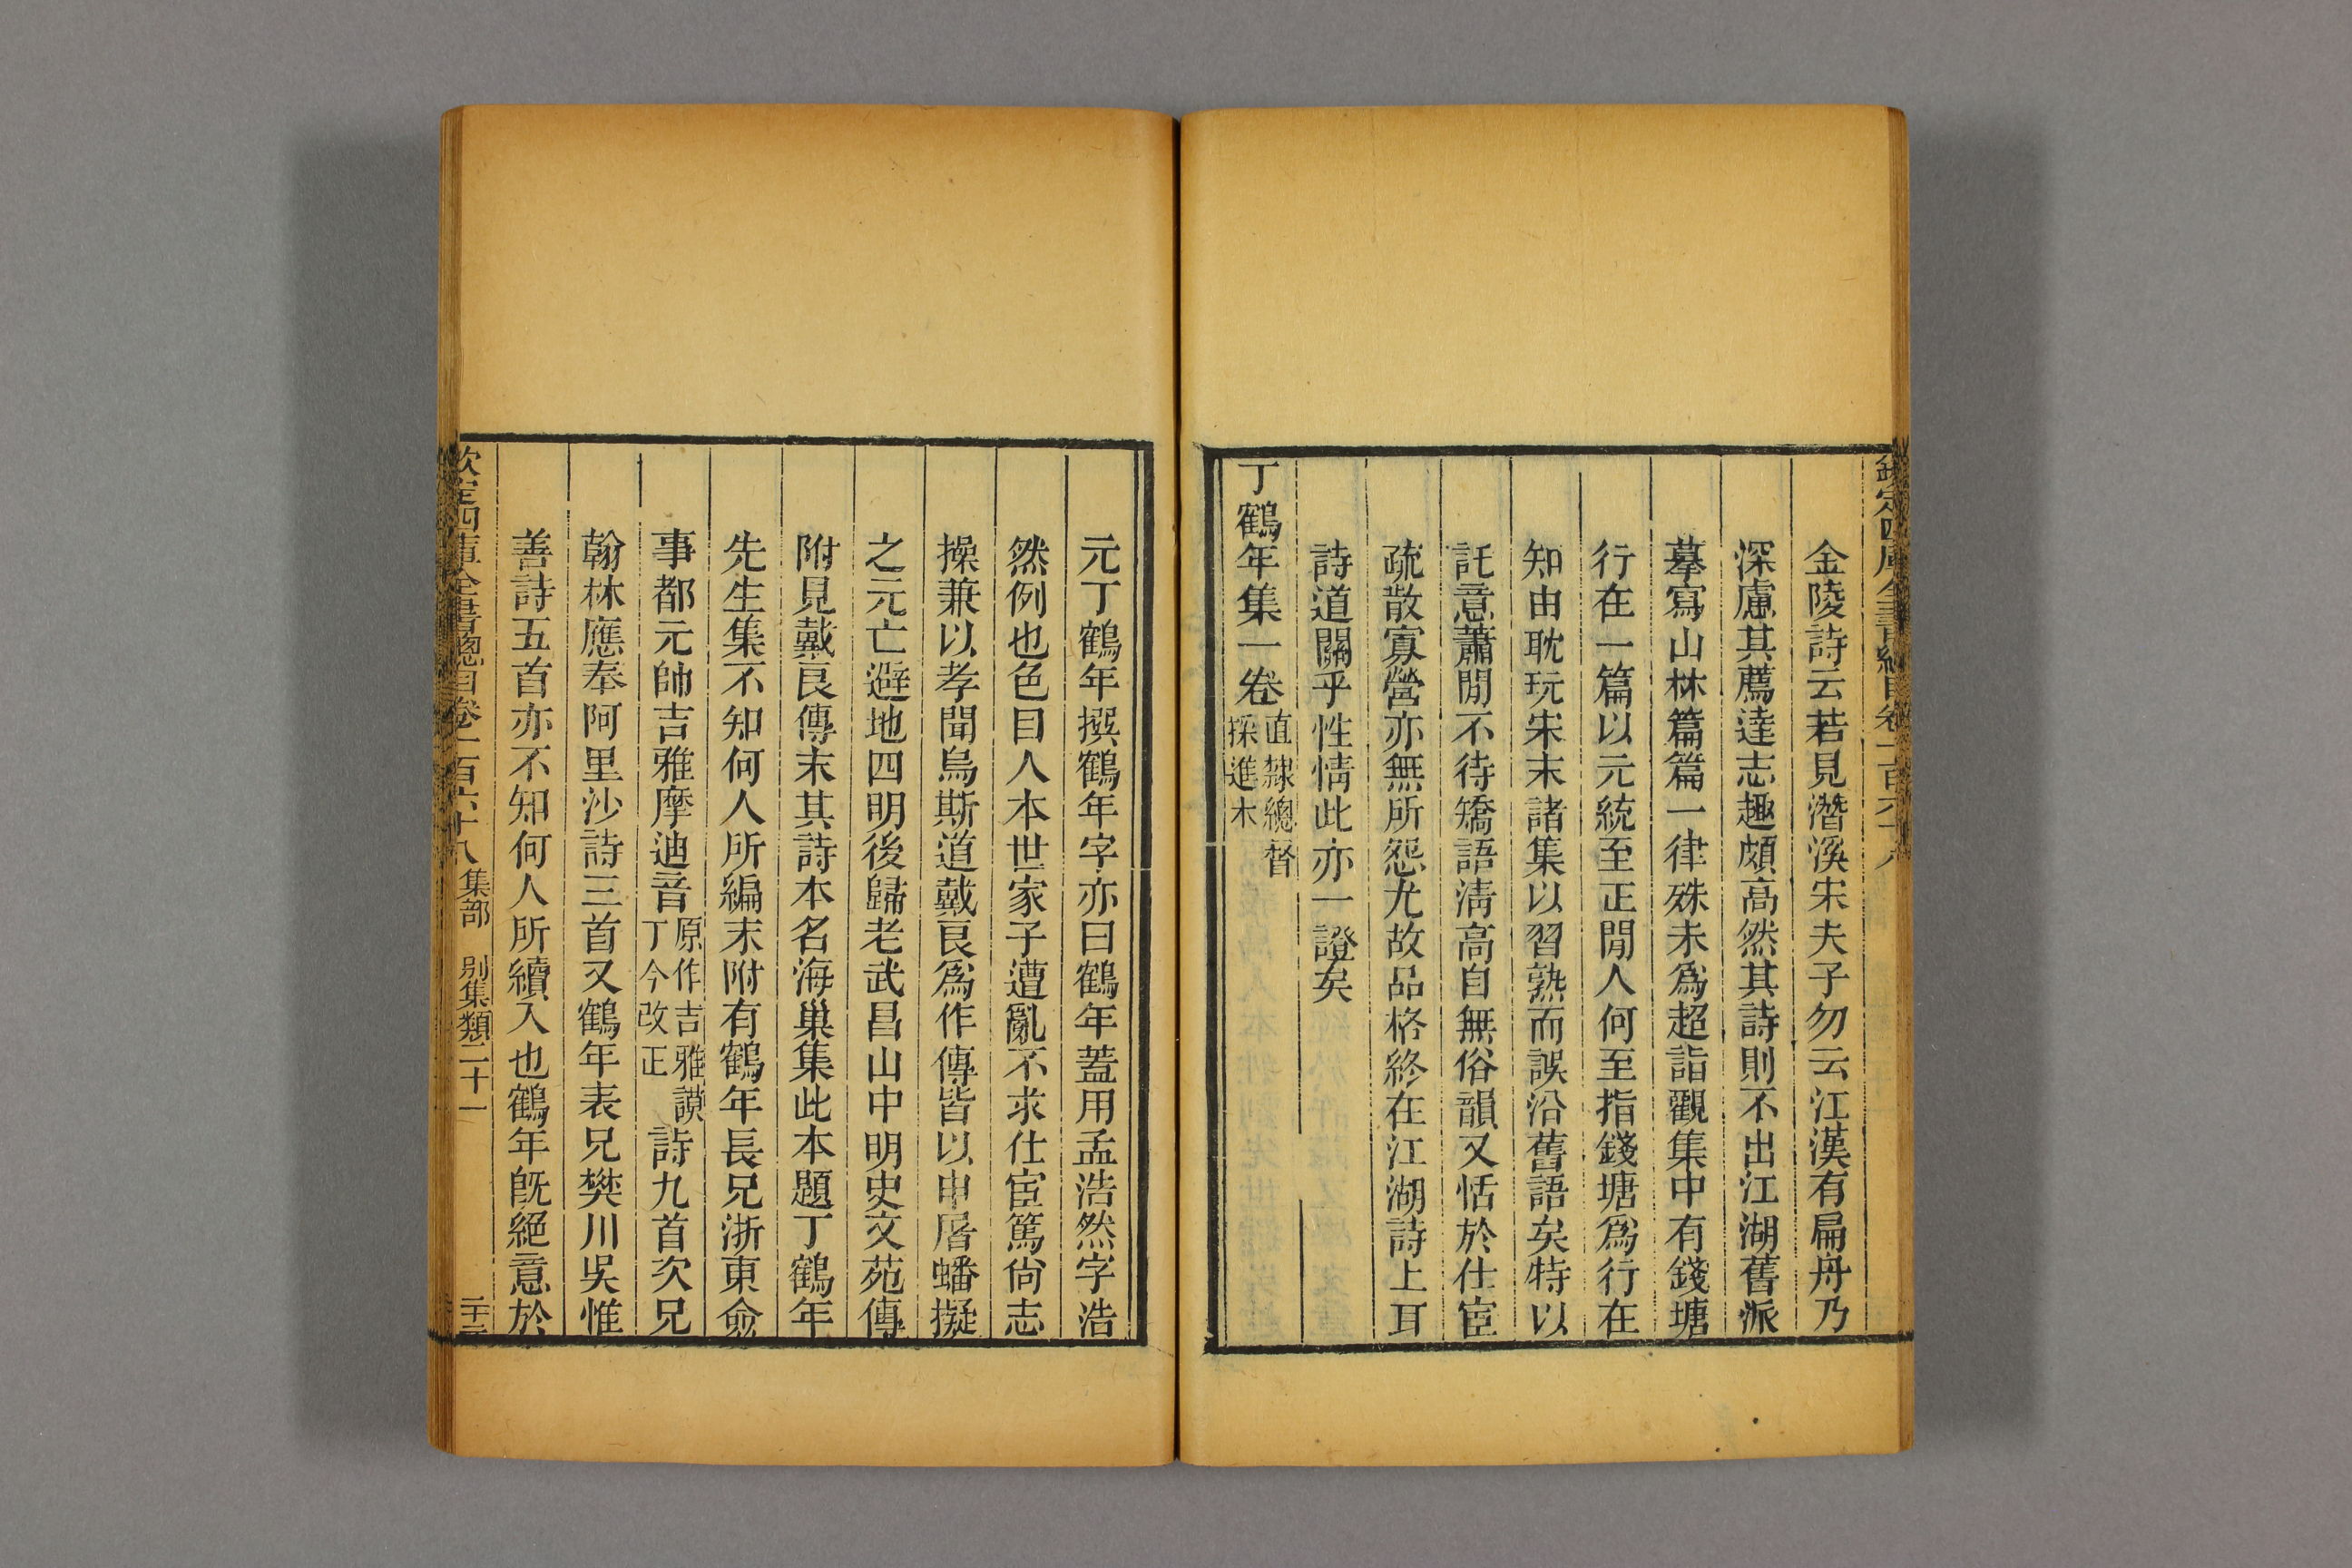 欽定四庫全書總目卷一百六十八
金陵詩云若見潛溪宋夫子勿云江漢有扁舟乃
深慮其薦達志趣頗高然其詩則不出江湖舊派
摹寫山林篇篇一律殊未爲超詣觀集中有錢塘
行在一篇以元統至正閒人何至指錢塘爲行在
知由耽玩宋末諸集以習熟而誤沿舊語矣特以
託意蕭閒不待矯語淸高自無俗韻又恬於仕宦
疏散寡營亦無所怨尤故品格終在江湖詩上耳
詩道關乎性情此亦一證矣
丁鶴年集一卷直隸總督
採進本
元丁鶴年撰鶴年字亦曰鶴年蓋用孟浩然字浩
然例也色目人本世家子遭亂不求仕宦篤尙志
操兼以孝聞烏斯道戴良爲作傳皆以申屠蟠擬
之元亡避地四明後歸老武昌山中明史文苑傳
附見戴良傳末其詩本名海巢集此本題丁鶴年
先生集不知何人所編末附有鶴年長兄浙東僉
事都元帥吉雅摩迪音原作吉雅謨
丁今改正詩九首次兄
翰林應奉阿里沙詩三首又鶴年表兄樊川吳惟
善詩五首亦不知何人所續入也鶴年旣絕意於
欽定四庫全書總目卷一百六十八 集部 別集類二十一